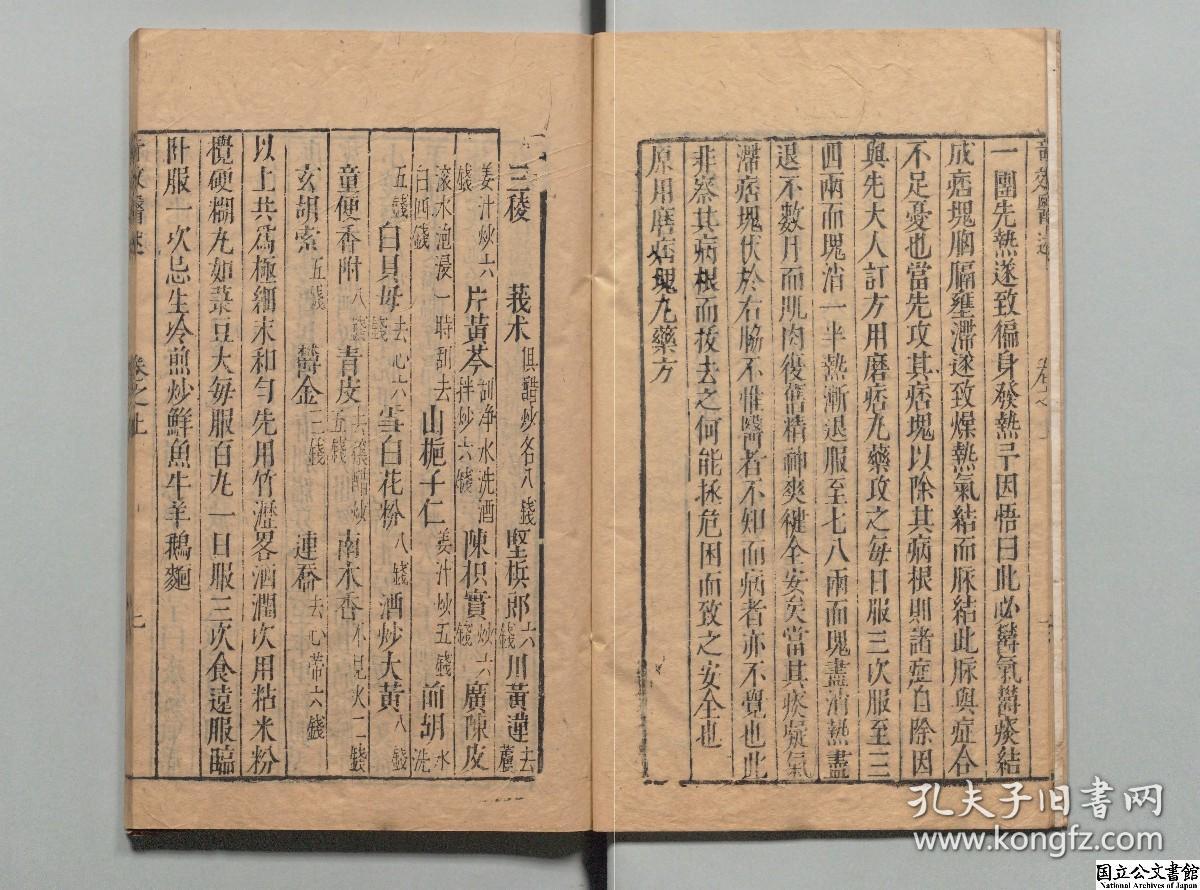 一團先熱遂致徧身發熱予因悟曰此必鬱氣鬱痰結
成痞塊胸膈壅滯遂致燥熱氣結而脉結此脉與症合
不足憂也當先攻其痞塊以除其病根則諸症自除因
與先大人訂方用磨痞丸藥攻之每日服三次服至三
四兩而塊消一半熱漸退服至七八兩而塊盡消熱盡
退不數月而肌肉復舊精神爽健全安矣當其痰凝氣
滯痞塊伏於右脇不惟醫者不知而病者亦不覺也此
非察其病根而拔去之何能拯危困而致之安全也
原用磨痞塊丸藥方
三稜 莪术俱醋炒各八錢 堅梹郎六錢 川黃連去蘆
姜汁炒六錢 片黃芩刮淨水洗酒拌炒六錢 陳枳實炒六錢 廣陳皮
滾水泡浸一時刮去白四錢 山梔子仁姜汁炒五錢 前胡水洗
五錢 白貝母去心六錢 雪白花粉八錢 酒炒大黃八錢
童便香附八錢 青皮去穰醋炒五錢 南木香不見火二錢
玄胡索五錢 鬱金三錢 連喬去心蒂六錢
以上共爲極細末和勻先用竹瀝畧洒潤次用粘米粉
攪硬糊丸如菉豆大每服百丸一日服三次食遠服臨
卧服一次忌生冷煎炒鮮魚牛羊鵝麵
卷之上
孔夫子旧书网
www.kongfz.com
国立公文書館
National Archives of Japan